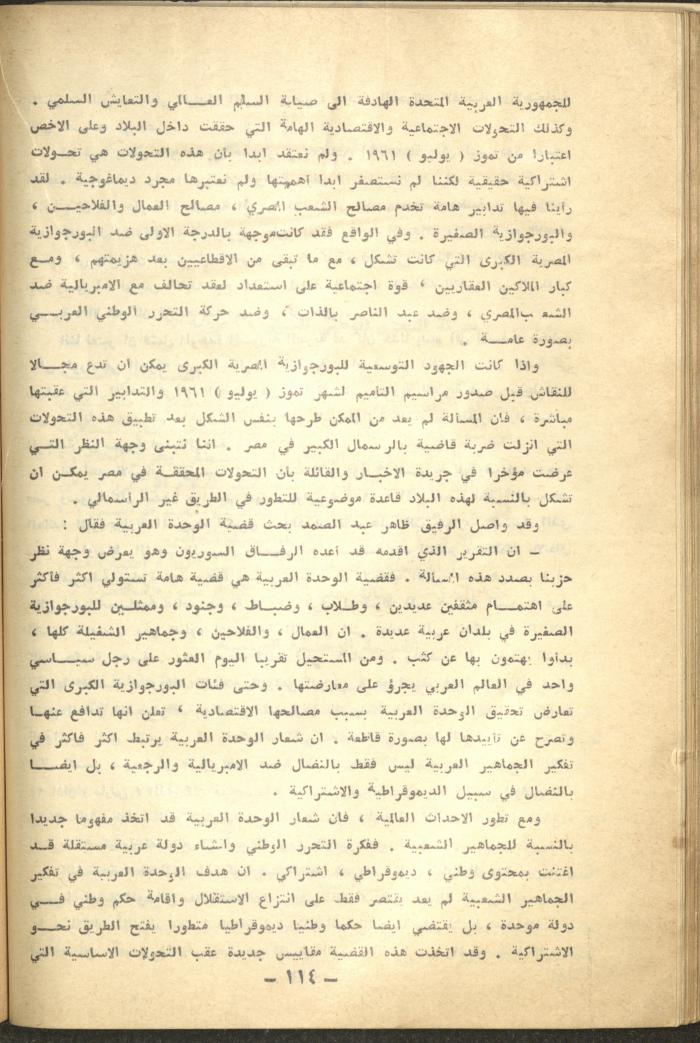 للجمهورية العربية المتحدة الهادفة الى صيانة السلم العـالي والتعايش السلمي .
وكذلك التحولات الاجتماعية والاقتصادية الهامة التي حققت داخل البلاد وعلى الاخص
اعتبارا من تموز ( يوليو ) ١٩٦١ . ولم نعتقد ابدا بأن هذه التحولات هي تحـولات
اشتراكية حقيقية لكننا لم نستصغر ابدا اهميتها ولم نعتبرها مجرد ديماغوجية . لقد
رأينا فيها تدابير هامة تخدم مصالح الشعب المصري ، مصالح العمال والفلاحيـن ،
والبورجوازية الصغيرة . وفي الواقع فقد كانت موجهة بالدرجة الاولى ضد البورجوازية
المصرية الكبرى التي كانت تشكل ، مع ما تبقى من الاقطاعيين بعد هزيمتهم ، ومـع
كبار الملاكين العقاريين ، قوة اجتماعية على استعداد لعقد تحالف مع الامبريالية ضد
الشعب المصري ، وضد عبد الناصر بالذات ، وضد حركة التحرر الوطني العربـي
بصورة عامـة .
واذا كانت الجهود التوسعية للبورجوازية المصرية الكبرى يمكن ان تدع مجـالا
للنقاش قبل صدور مراسيم التأميم لشهر تموز ( يوليو ) ١٩٦١ والتدابير التي عقبتها
مباشرة ، فان المسألة لم يعد من الممكن طرحها بنفس الشكل بعد تطبيق هذه التحولات
التي انزلت ضربة قاضية بالرسمال الكبير في مصر . اننا نتبنى وجهة النظر التـي
عرضت مؤخرا في جريدة الاخبـار والقائلة بأن التحولات المحققـة في مصر يمكـن ان
تشكل بالنسبة لهذه البلاد قاعدة موضوعية للتطور في الطريق غير الرأسمالي .
وقد واصل الرفيق ظاهر عبد الصمد بحث قضية الوحدة العربية فقال :
– ان التقرير الذي اقدمه قد أعده الرفـاق السوريون وهو يعرض وجهة نظر
حزبنا بصدد هذه المسألة . فقضية الوحدة العربية هي قضية هامة تستولي اكثر فأكثر
على اهتمـام مثقفين عديدين ، وطـلاب ، وضبـاط ، وجنود ، وممثلـين للبورجوازية
الصغيرة في بلدان عربية عديدة . ان العمال ، والفلاحين ، وجماهير الشغيلة كلها ،
بدأوا يهتمون بها عن كثب . ومن المستحيل تقريبا اليوم العثور على رجل سيـاسي
واحد في العالم العربي يجرؤ على معارضتها . وحتى فئات البورجوازية الكبرى التي
تعارض تحقيق الوحدة العربية بسبب مصالحها الاقتصادية ، تعلن انها تدافع عنهـا
وتصرح عن تأييدها لها بصورة قاطعة . ان شعار الوحدة العربية يرتبط اكثر فأكثر في
تفكير الجماهير العربية ليس فقط بالنضال ضد الامبريالية والرجعية ، بل ايضـا
بالنضال في سبيل الديموقراطية والاشتراكية .
ومع تطور الاحداث العالمية ، فان شعار الوحدة العربية قد اتخذ مفهوما جديدا
بالنسبة للجماهير الشعبية . ففكرة التحرر الوطني وانشاء دولة عربية مستقلة قـد
اغتنت بمحتوى وطني ، ديموقراطي ، اشتراكي . ان هدف الوحدة العربية في تفكير
الجماهير الشعبية لم يعد يقتصر فقط على انتزاع الاستقلال واقامة حكم وطني فـي
دولة موحدة ، بل يقتضي ايضا حكما وطنيا ديموقراطيا متطورا يفتح الطريق نحـو
الاشتراكية . وقد اتخذت هذه القضية مقاييس جديدة عقب التحولات الاساسية التي
– ١١٤ –